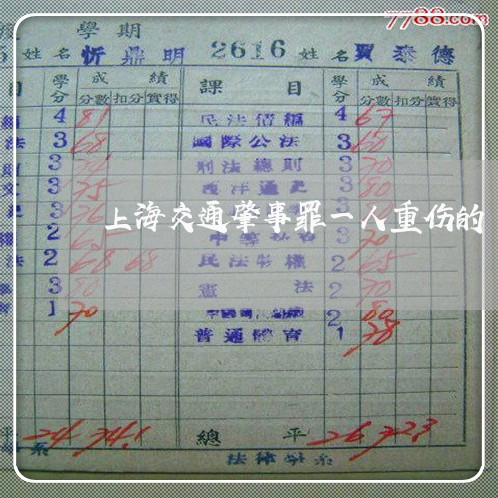 7788.com
學期
姓名 忻鼎明 2616 姓名 賈泰德
目 學分 成績 課目 學分 成績
分數 扣分 實得 分數 扣分 實得
4 81 民法債編 4 67
法 3 68 國際公法 3 60
3 刑法總則 3 70
3 75 西洋通史 3 80
3 76 3
上海交通肇事罪一人重伤的
2 65 3 70
法 2 68 68 民法物權 2 65
3 80 憲法 2 70
育 1 70 2 80
普通體育 1 78
平 24 74.1 總平 26 72.3
系 法律學系